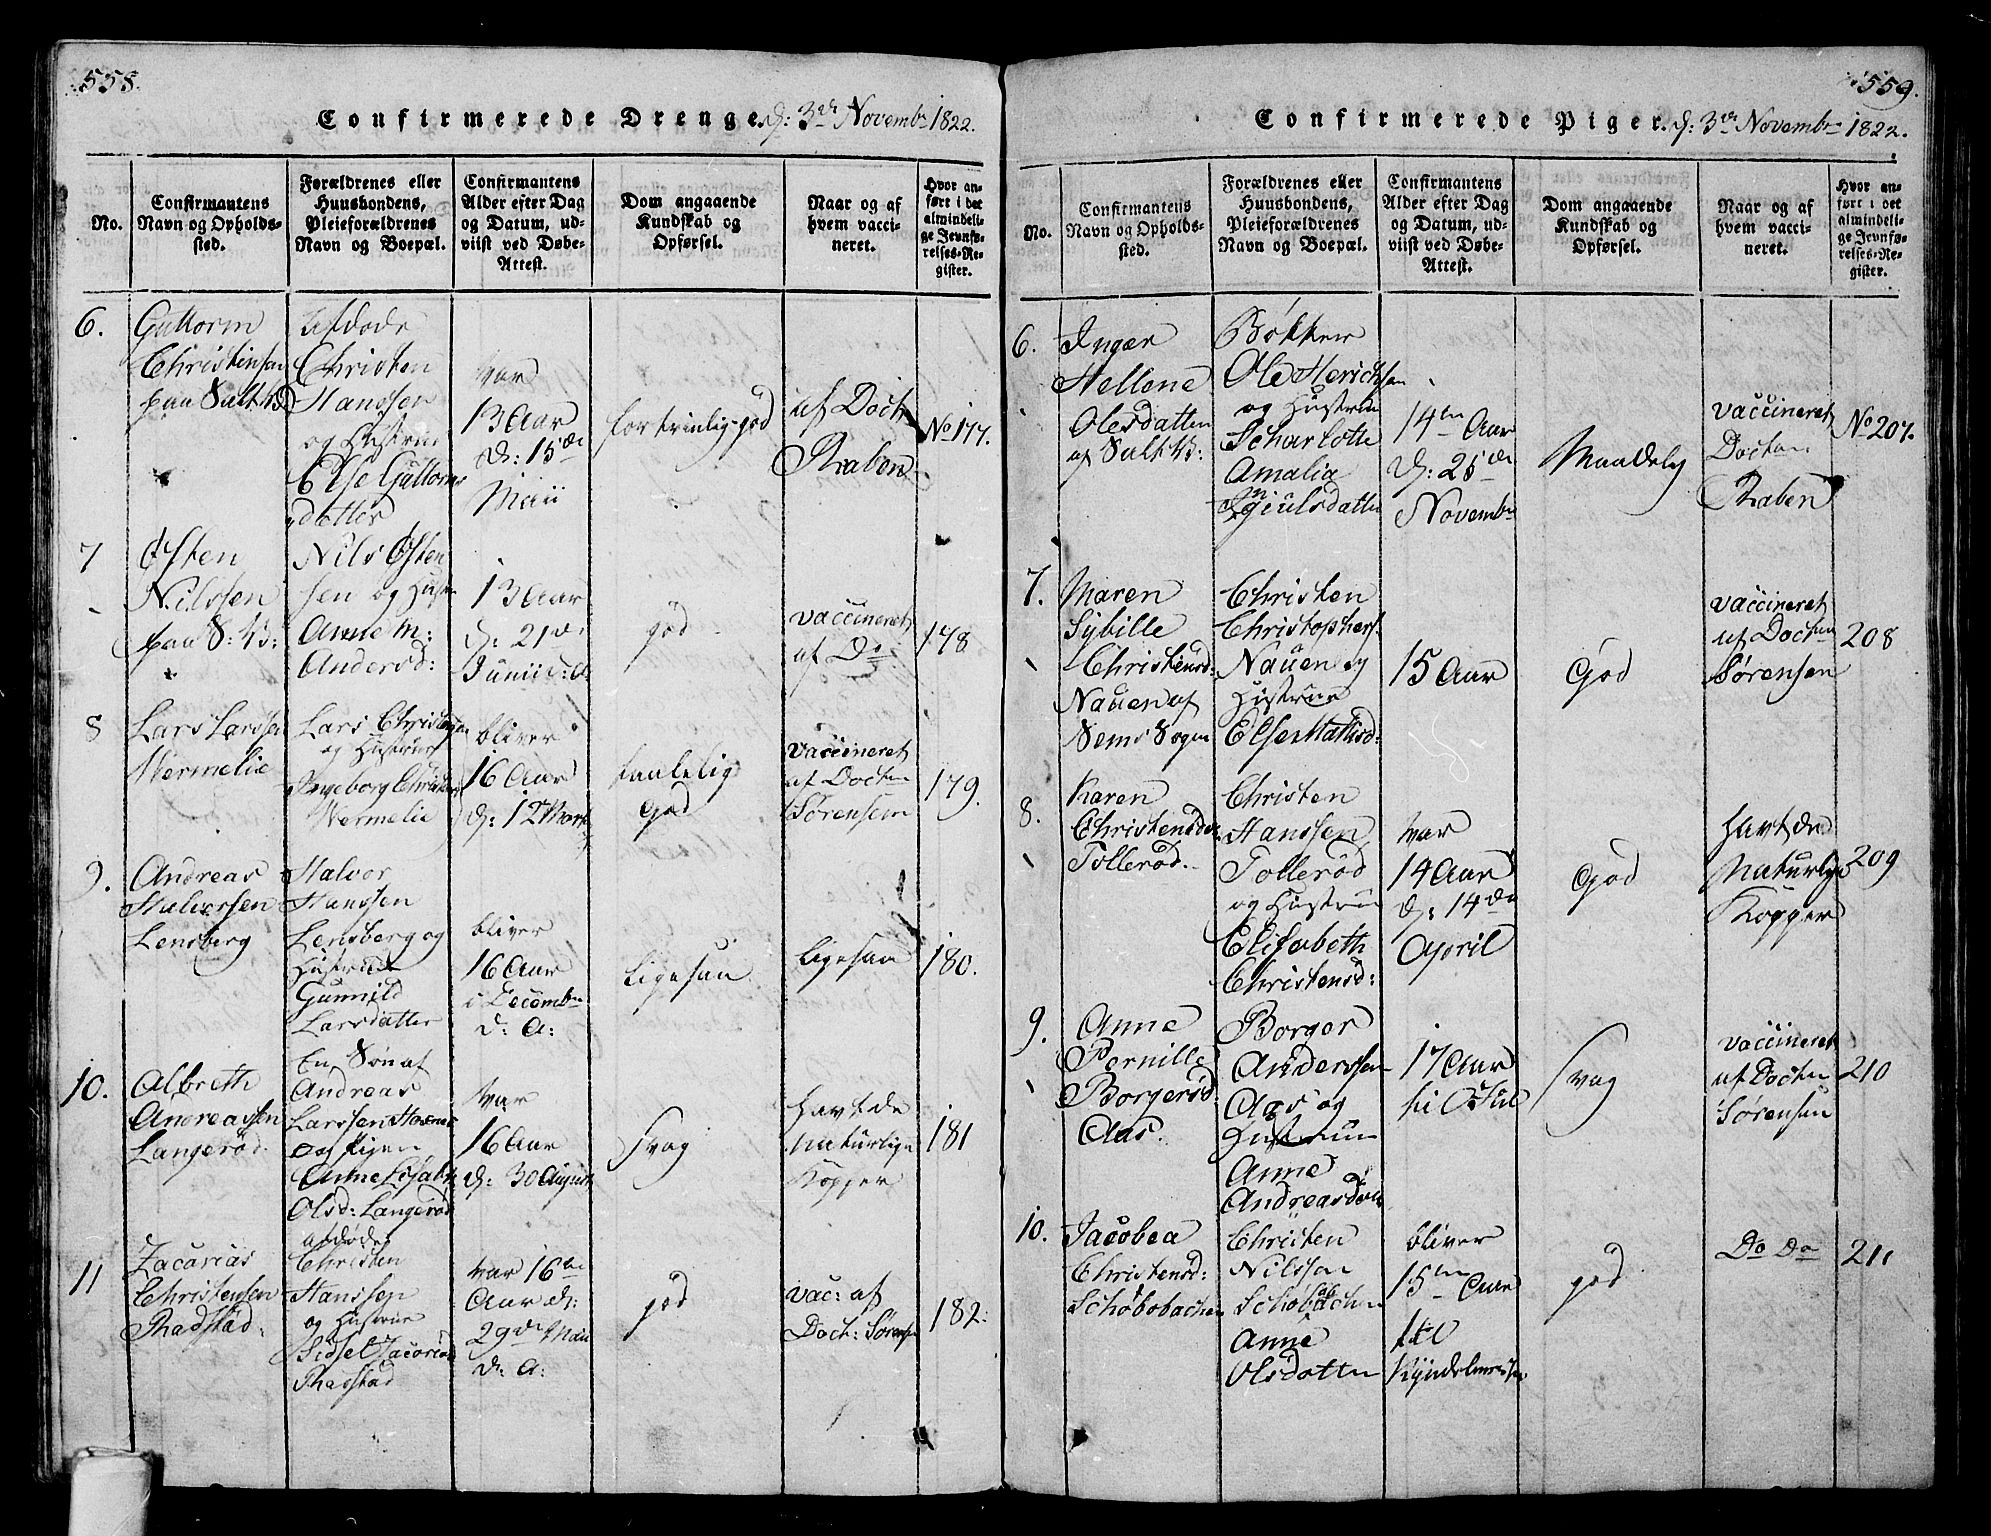 558.
Confirmerede Drenge. d: 3de Novembr 1822.
No.
Confirmantens
Navn og Opholds-
sted.
Forældrenes eller
Huusbondens,
Pleieforældrenes
Navn og Boepæl.
Confirmantens
Alder efter Dag
og Datum, ud-
viist ved Døbe-
Attest.
Dom angaaende
Kundskab og
Opførsel.
Naar og af
hvem vacci-
neret.
Hvor an-
ført i det
almindeli-
ge Jevnfø-
relses-Re-
gister.
6.
Guttorm
Christensen
paa Salt V:
Afdøde
Christen
Hanssen
og Hustrue
Else Guttorms
datter
var
13 Aar
d: 15de
Maii
fortrinlig god
af Doct:
Raben
No 177.
7
Østen
Nilssen
paa S: V:
Nils Østen
sen og Hustr
Anne M:
Andersd:
13 Aar
d: 21de
Junii d: A:
god
vaccineret
af Do
178
8
Lars Larssen
Vermelie
Lars Christensen
og Hustrue
Ingeborg Christens
Vermelie
bliver
16 Aar
d: 12 Marts
taalelig
god
vaccineret
af Docter
Sørensen
179.
9.
Andreas
Halversen
Lensberg
Halvor
Hanssen
Lensberg og
Hustrue
Gunnild
Larsdatter
bliver
16 Aar
i Decembr
d: A:
ligesaa
ligesaa
180.
10.
Albreth
Andreassen
Langerød
En Søn af
Andreas
Larssen
og Pigen
Anne Lisabet
Olsd: Langerød
var
16 Aar
d: 30 August
svag
havt de
naturlige
Kopper
181
11
Zacarias
Christensen
Rastad
afdøde
Christen
Hanssen
og Hustrue
Sidsel Zacarid
Rastad
var 16 
Aar d:
29de Maii
d: A:
god
vac: af
Doct: Sørensen
182.
559.
Confirmerede Piger. d: 3de Novembr 1822.
No.
Confirmantens
Navn og Opholds-
sted.
Forældrenes eller
Huusbondens,
Pleieforældrenes
Navn og Boepæl.
Confirmantens
Alder efter Dag
og Datum, ud-
viist ved Døbe-
Attest.
Dom angaaende
Kundskab og
Opførsel.
Naar og af
hvem vacci-
neret.
Hvor an-
ført i det
almindeli-
ge Jevnfø-
relses-Re-
gister.
6.
Inger
Hellene
Olesdatter
af Salt V:
Bøkker
Ole Henrichsen
og Hustrue
Scharlotte
Amalia
14 Aar
d: 25de
Novembr
Maadelig
vaccineret
Docter
Raben
No 207.
7.
Maren
Sybille
Christensd:
Nauen af
Sems Sogn
Christen
Christophers:
Nauen og
Hustrue
Else Mathisd:
15 Aar
God
vaccineret
af Docter
Sørensen
208
8.
Karen
Christensdr
Tollerød.
Christen
Hanssen
Tollerød
og Hustrue
Elisabeth
Christensd:
var
14 Aar
d: 14de
April
God
havt de
Naturlige
Kopper
209
9.
Anne
Pernille
Borgersd
Aas.
Borger
Anderssen
Aas og
Hustrue
Anne
Andreasdatter
17 Aar
til
svag
vaccineret
af Docter
Sørensen
210
10.
Jacobea
Christensd:
Christen
Nilssen
Anne
Olsdatter
bliver
15 Aar
til
Kyndelmesse
god
Do Do
211